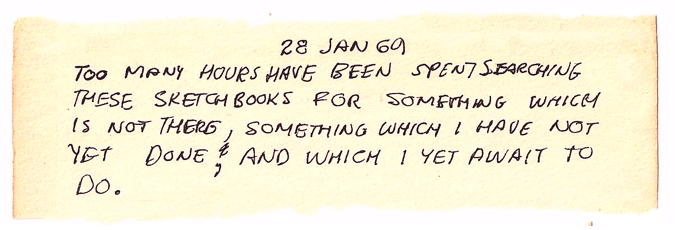 28 JAN 69
TOO MANY HOURS HAVE BEEN SPENT SEARCHING
THESE SKETCHBOOKS FOR SOMETHING WHICH
IS NOT THERE, SOMETHING WHICH I HAVE NOT
YET DONE; AND WHICH I YET AWAIT TO
DO.